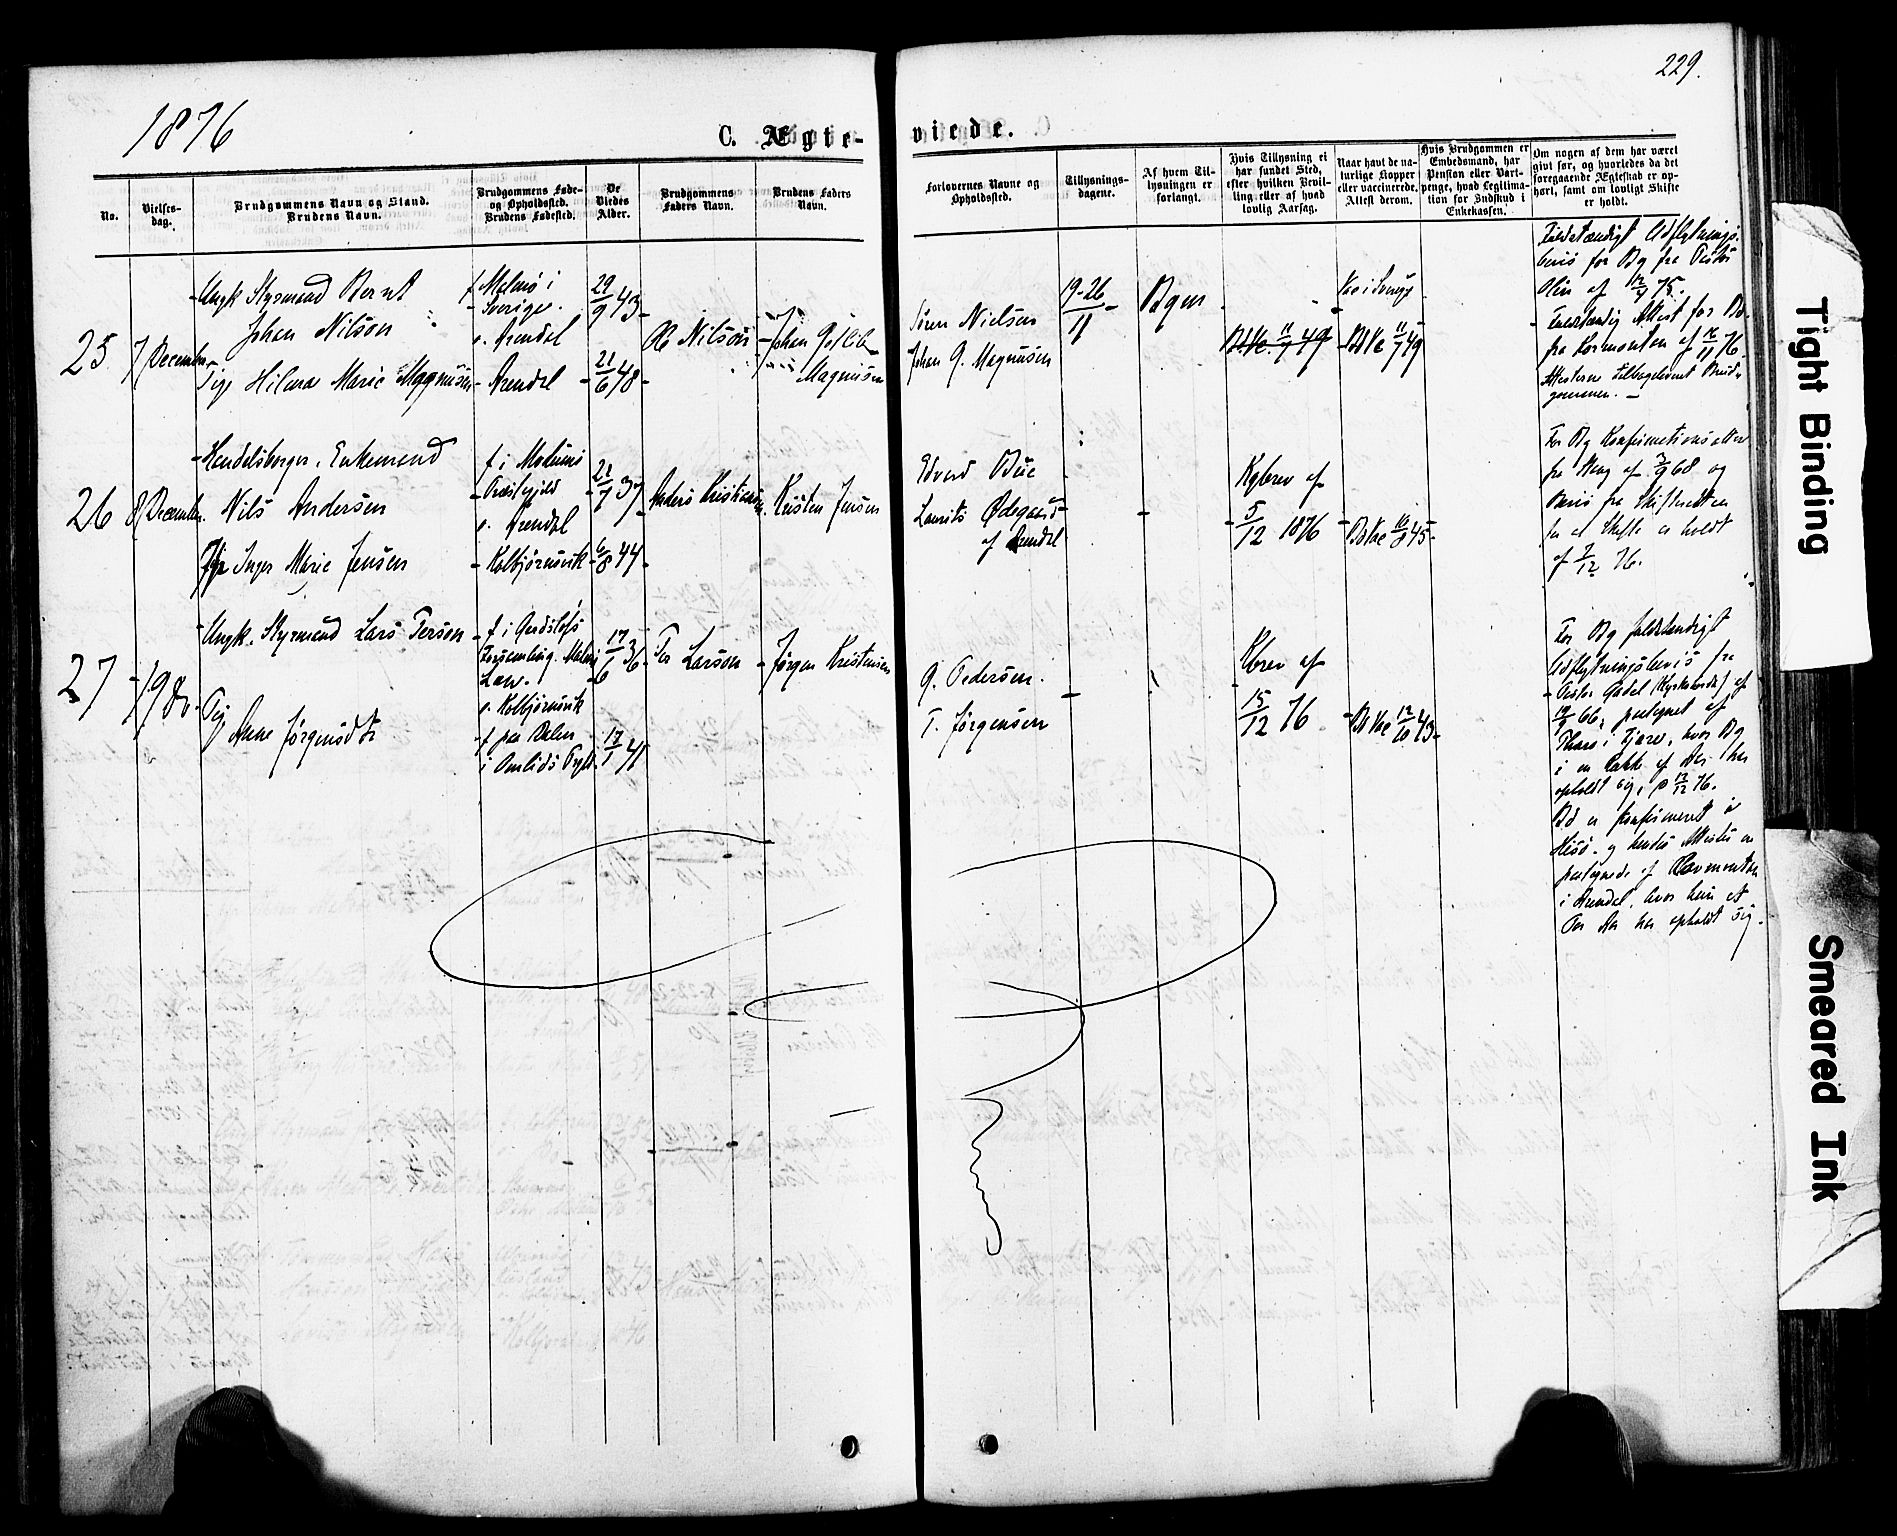 229.
1876
C. Ægte-
viede.
No.
Vielses-
dag.
Brudgommens Navn og Stand.
Brudens Navn.
Brudgommens Føde-
og Opholdssted.
Brudens Fødested.
De
Viedes
Alder.
Brudgommens
Faders Navn.
Brudens Faders
Navn.
Forlovernes Navne og
Opholdssted.
Tillysnings-
dagene.
Af hvem Til-
lysningen er
forlangt.
Hvis Tillysning ei
har fundet Sted,
efter hvilken Bevil-
ling eller af hvad
lovlig Aarsag.
Naar havt de na-
turlige Kopper
eller vaccinerede.
Attest derom.
Hvis Brudgommen er
Embedsmand, har
Pension eller Vart-
penge, hvad Legitima-
tion for Indskud i
Enkekassen.
Om nogen af dem har været
givt før, og hvorledes da det
foregaaende Ægteskab er op-
hørt, samt om lovligt Skifte
er holdt.
25
7 December
Ungk Styrmand Bernt
Johan Nilson
Pige Hilma Marie Magnusen
f Malmø i
Sverige.
o. Arendal
Arendal
29/9 43
21/6 48
Ole Nilson
Johan
Magnusen
Søren Nielsen
Johan G. Magnusen
19-26
11
Bgm
Bd Vac 11/7 49
Vac i Sverige
Bd Vac 11/7 49
Fuldstændigt Udflytnings-
bevis for Bg fra Pastor
Olin af
Fuldstændig Attest for Bd
fra Kormonton af
11 76.
Attesterne tilbageleveret Brud-
gommen.
26
8 December
Handelsborger, Enkemand
Nils Andersen
Pige Inger Marie Jensen
f i
Præstegjeld
o. Arendal
Kolbjørnsvik
37
6/8 44
Anders Kristiansen
Kristen Jensen
Edvard Bue
Laurits Ødegaard
af Arendal
Kgbrev af
5/12 1876
Bd Vac 16/8 45
For Bg Konfirmationsattest
fra
68 og
Bevis fra Skifteretten
for at Skifte er holdt
af 7/12 76.
27
19 do.
Ungk. Styrmand Lars Person
Pige
Anne Jørgensdtr
f i
Forsamling. Malmø
Læn.
o. Kolbjørnsvik
f paa Dalen
i Omlids Prgld
17/6 36
17/1 41
Per Larson
Jørgen Kristensen
G. Pedersen.
T. Jørgensen
Kbrev af
15/12 76
Bd Vac 12/10 43
For Bg fuldstændigt
Udflytningsbevis fra
Pastor
66, paategnet af
hvor Bg
i en Række af Aar har
opholdt sig, 13/12 76.
Bd er konfirmeret i
Hisø. og hendes Attester er
paategnede af
i Arendal, hvor hun et
Par Aar har opholdt sig.
Tight Binding
Smeared Ink